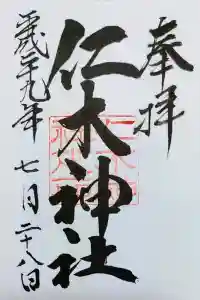 奉拝
仁木神社
平成二十九年 七月二十八日